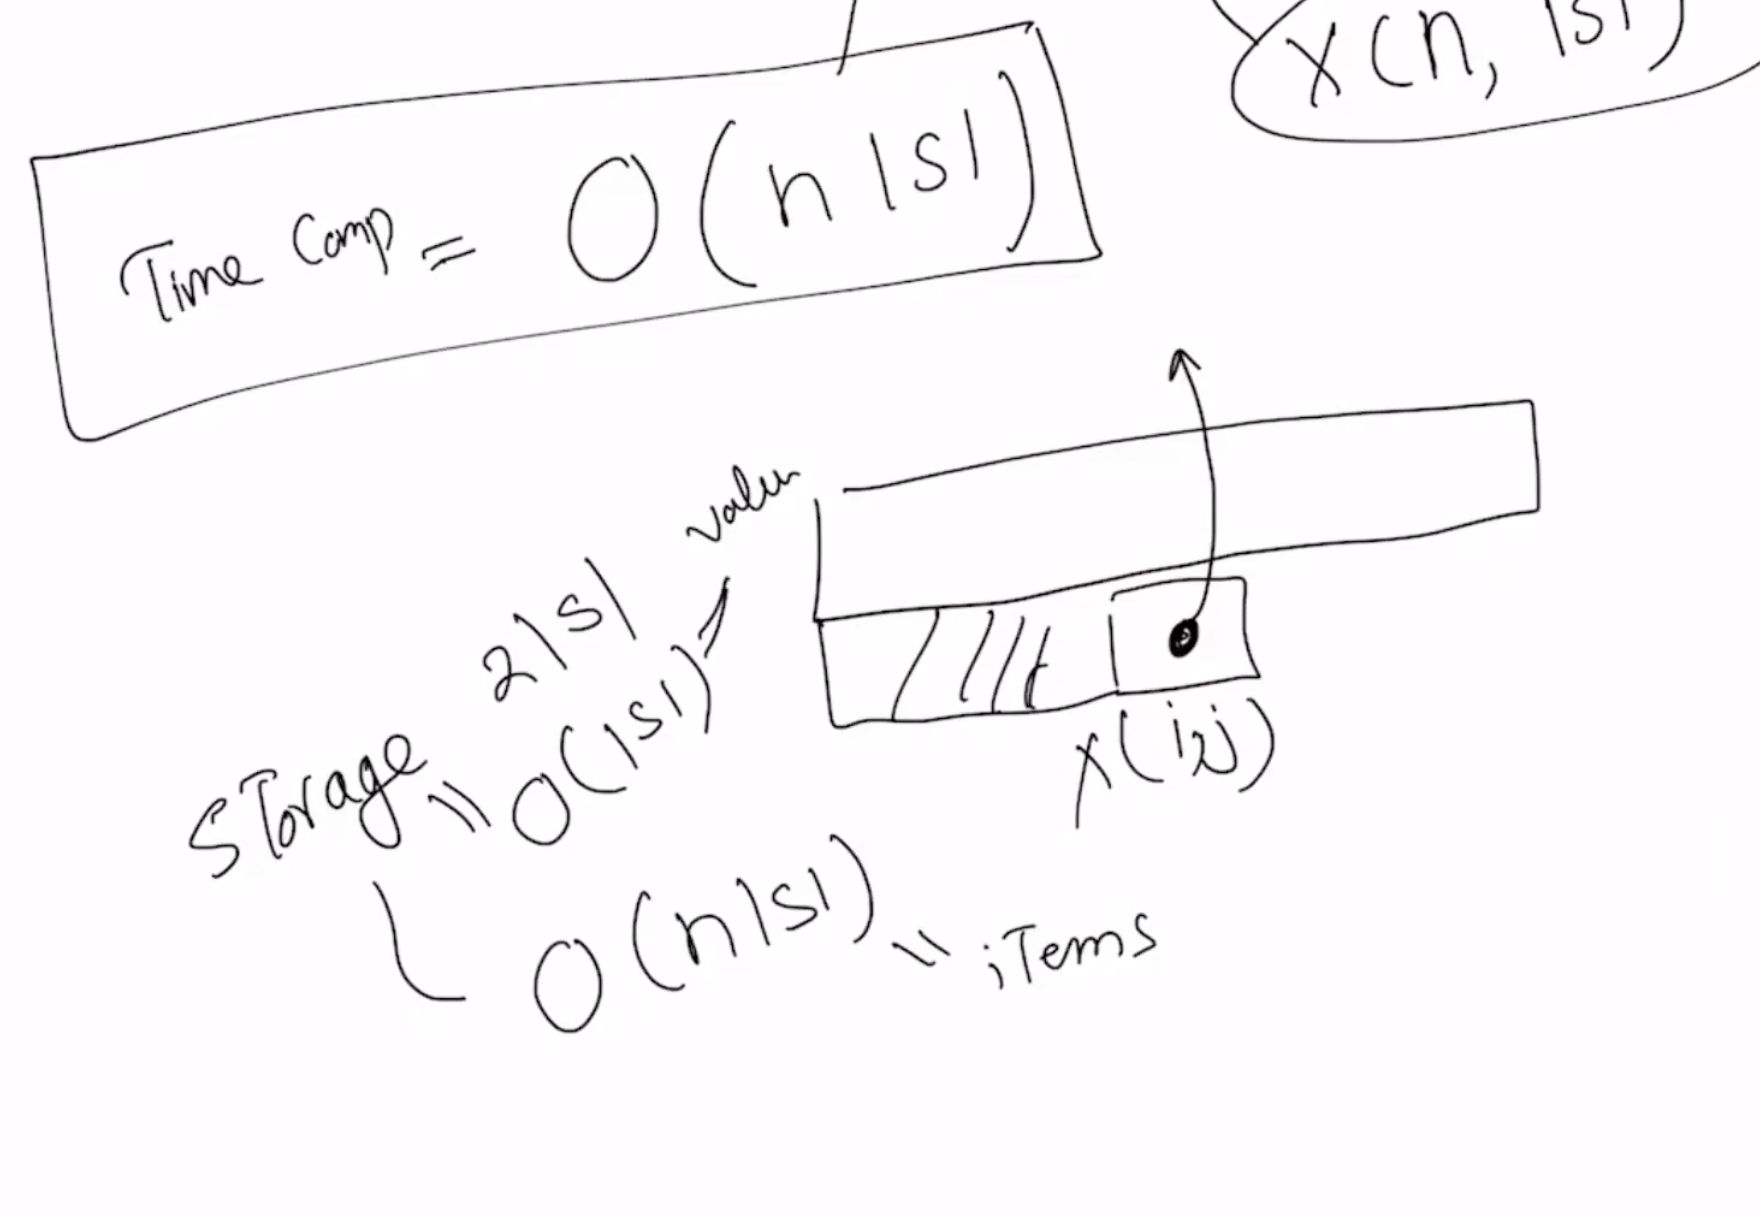 X(n, |S|)
Time Comp = O(n|S|)
value
2|S|
Storage = O(|S|)
X(i,j)
O(n|S|) = items